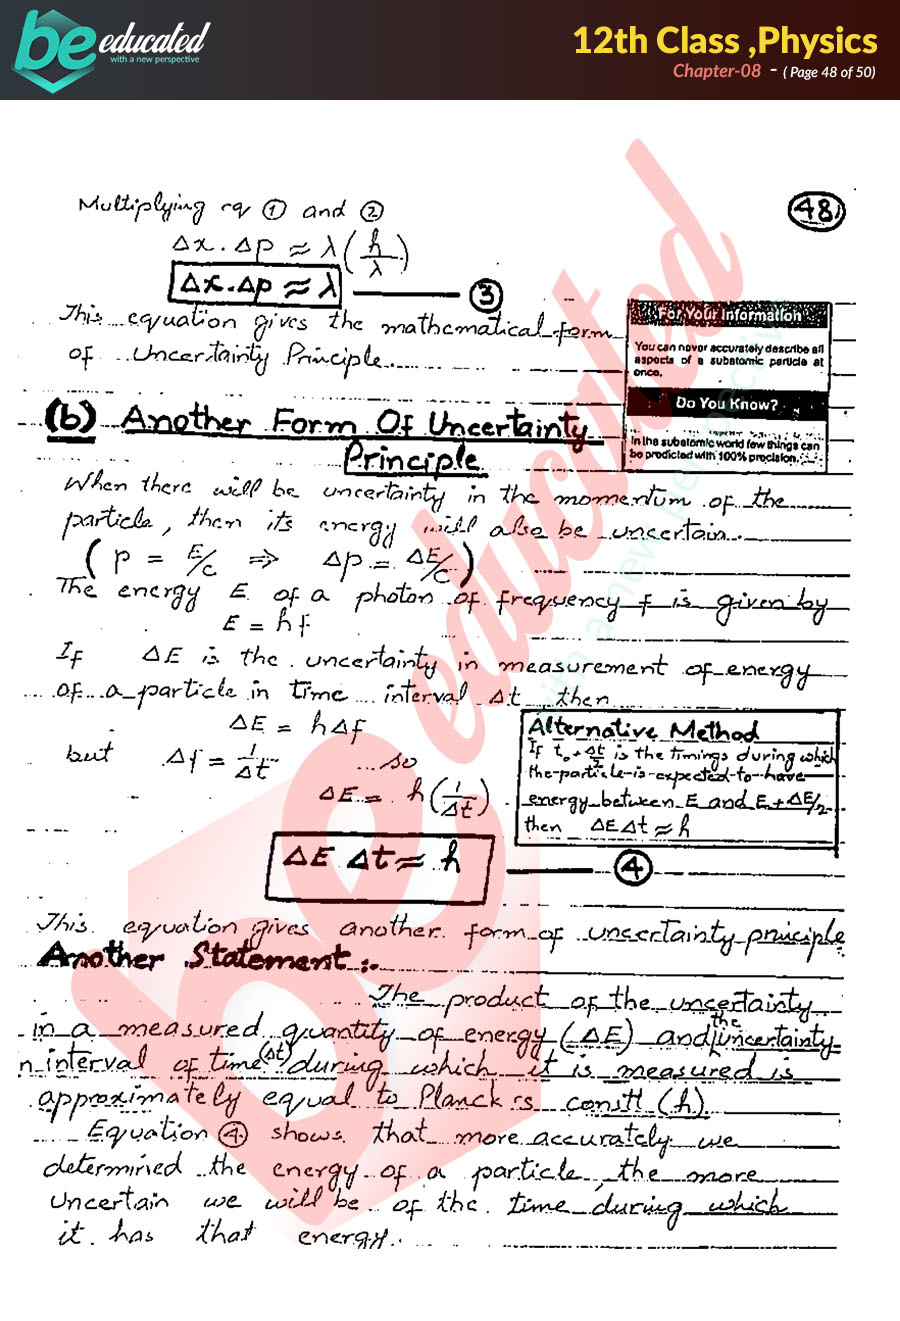 be educated
with a new perspective
12th Class ,Physics
Chapter-08 - ( Page 48 of 50)
Multiplying eq ① and ②
48
Δx . Δp ≈ λ (h/λ)
Δx . Δp ≈ λ ③
This equation gives the mathematical form
of Uncertainty Principle
For Your Information
You can never accurately describe all
aspects of a subatomic particle at
once.
Do You Know?
In the subatomic world few things can
be predicted with 100% precision.
(b) Another Form Of Uncertainty
Principle
When there will be uncertainty in the momentum of the
particle, then its energy will also be uncertain.
( P = E/c ⇒ Δp = ΔE/c )
The energy E of a photon of frequency f is given by
E = hf
If ΔE is the uncertainty in measurement of energy
of a particle in time interval Δt then
ΔE = hΔf
but Δf = 1/Δt so
ΔE = h(1/Δt)
Alternative Method
If t₀ + Δt/2 is the timings during which
the particle is expected to have
energy between E and E + ΔE/2
then ΔE Δt ≈ h
ΔE Δt ≈ h ④
This equation gives another form of uncertainty principle.
Another Statement :-
The product of the uncertainty
in a measured quantity of energy (ΔE) and the uncertainty
n interval of time (Δt) during which it is measured is
approximately equal to Planck's constt (h).
Equation ④ shows that more accurately we
determined the energy of a particle, the more
uncertain we will be of the time during which
it has that energy.
be educated
with a new perspective